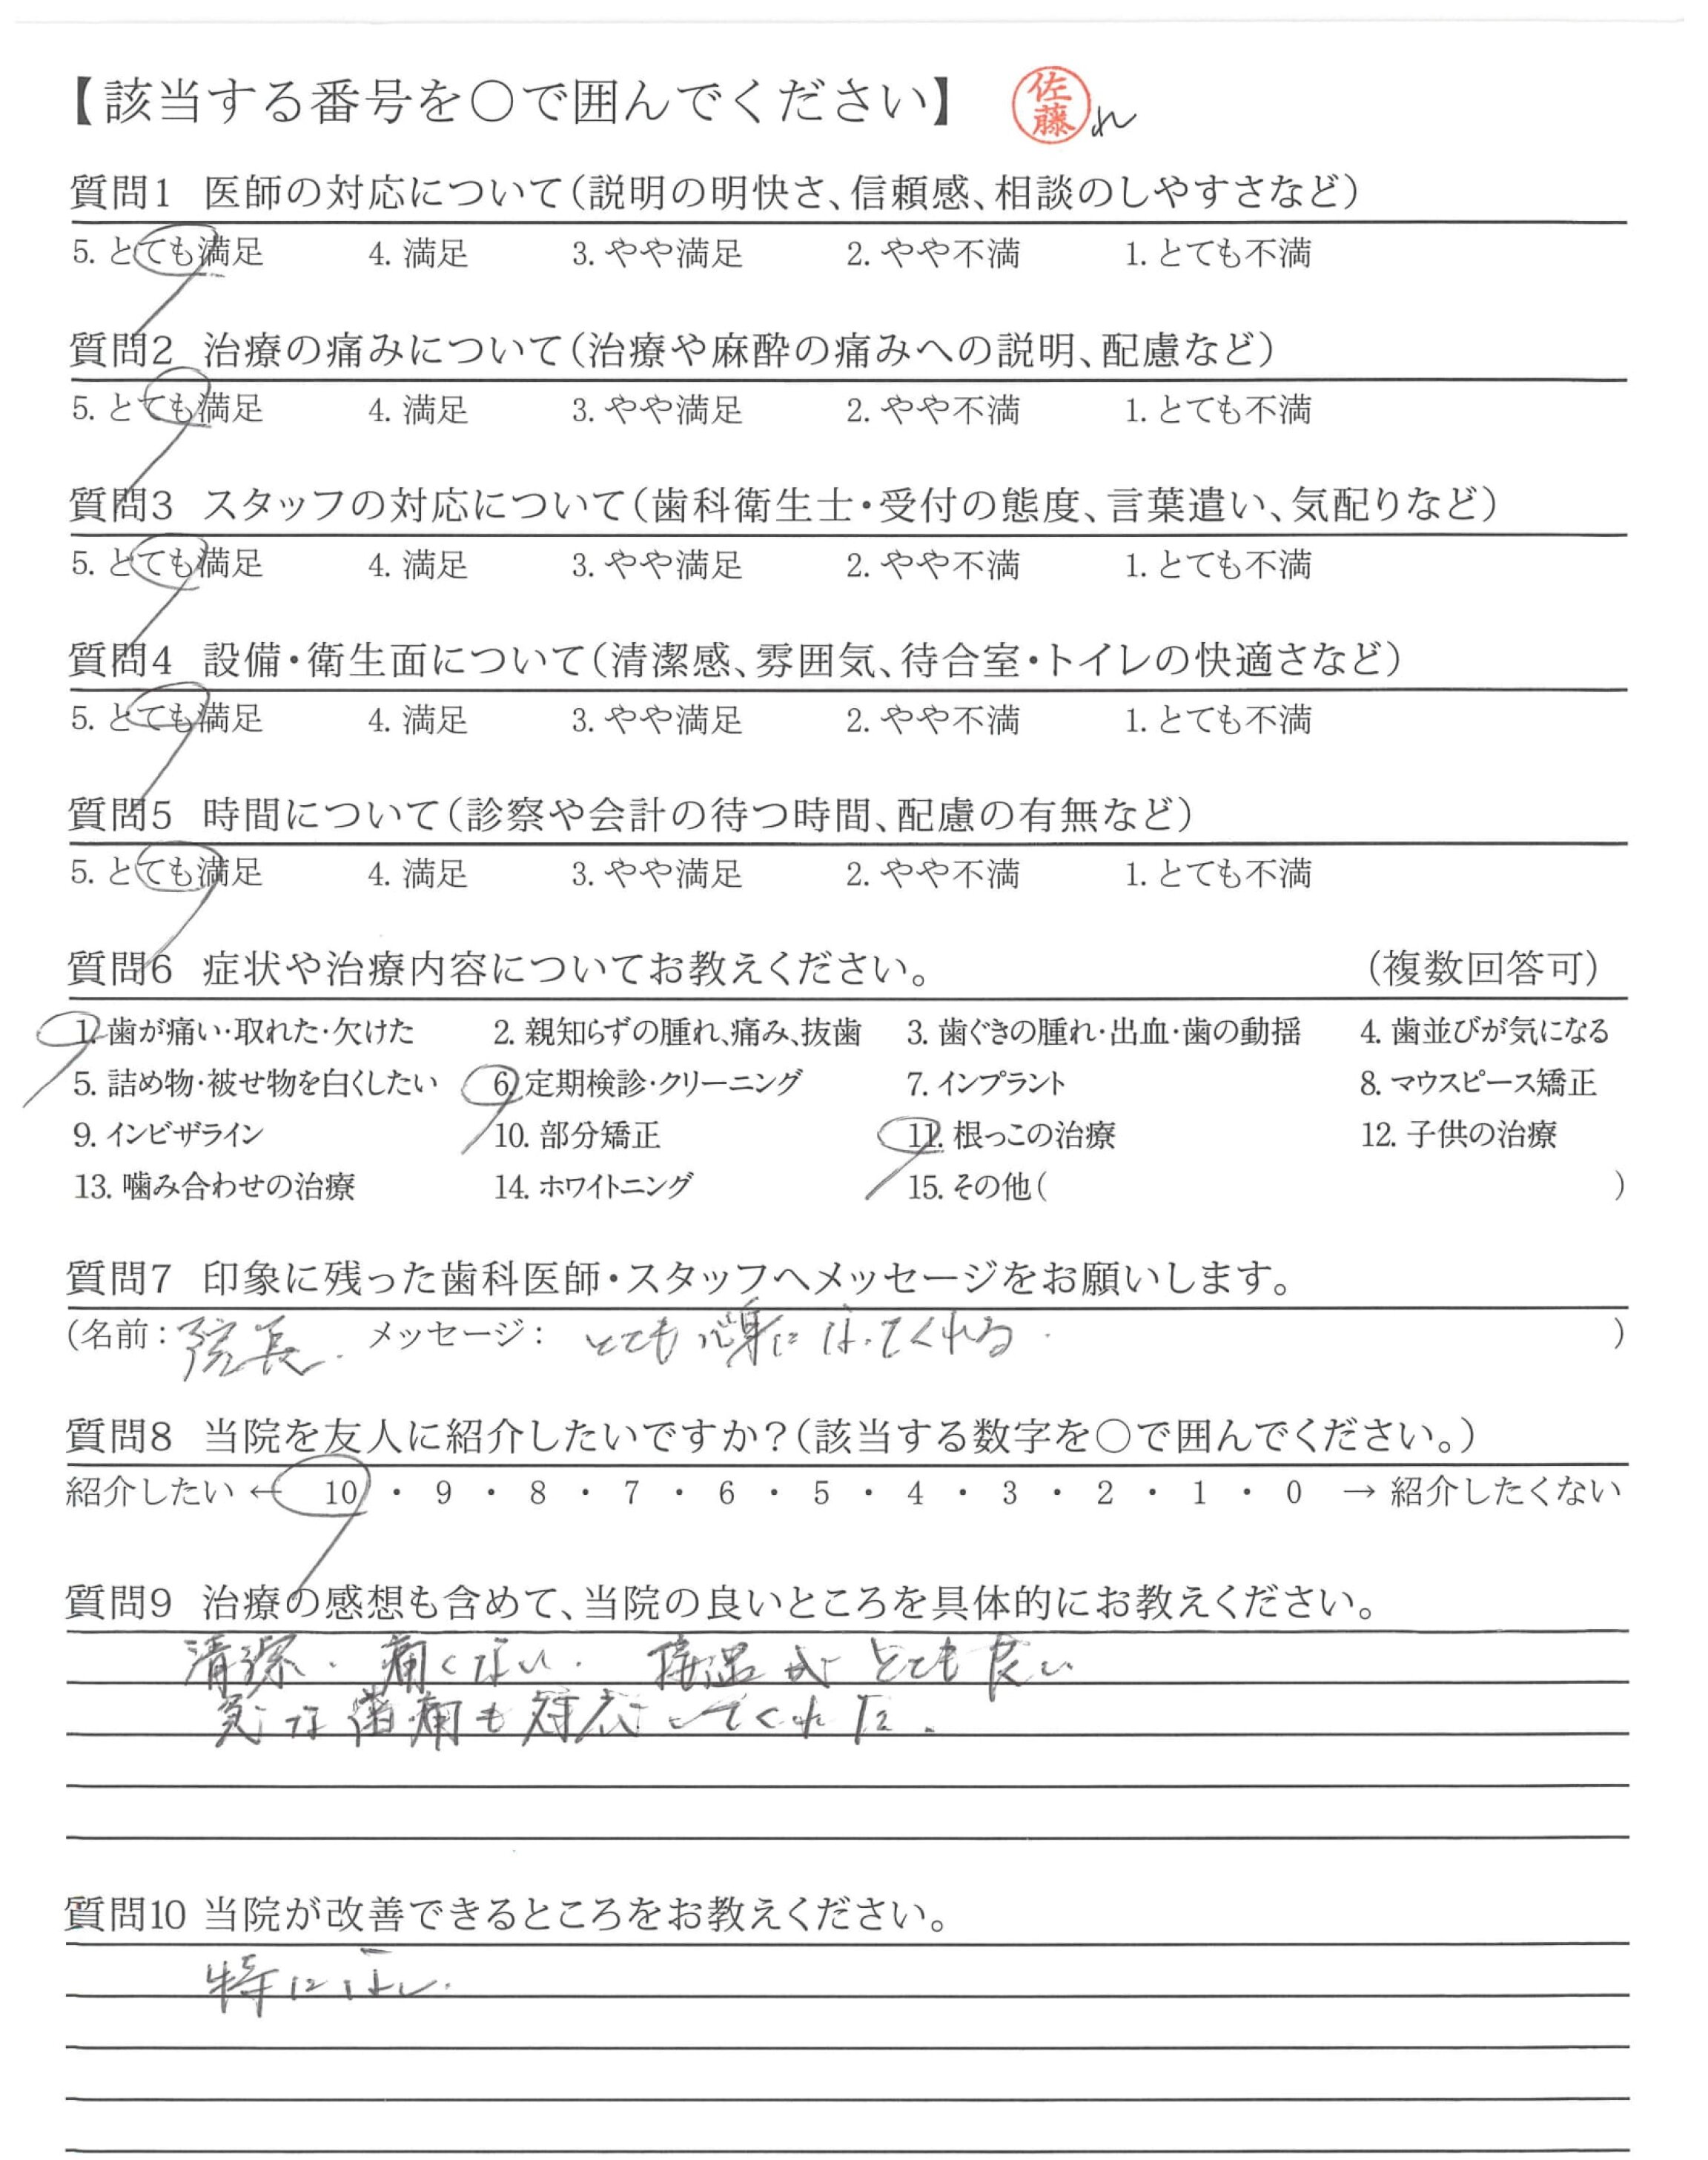 【該当する番号を〇で囲んでください】 佐藤 れ
質問1 医師の対応について(説明の明快さ、信頼感、相談のしやすさなど)
5. とても満足 4. 満足 3. やや満足 2. やや不満 1. とても不満
質問2 治療の痛みについて(治療や麻酔の痛みへの説明、配慮など)
5. とても満足 4. 満足 3. やや満足 2. やや不満 1. とても不満
質問3 スタッフの対応について(歯科衛生士・受付の態度、言葉遣い、気配りなど)
5. とても満足 4. 満足 3. やや満足 2. やや不満 1. とても不満
質問4 設備・衛生面について(清潔感、雰囲気、待合室・トイレの快適さなど)
5. とても満足 4. 満足 3. やや満足 2. やや不満 1. とても不満
質問5 時間について(診察や会計の待つ時間、配慮の有無など)
5. とても満足 4. 満足 3. やや満足 2. やや不満 1. とても不満
質問6 症状や治療内容についてお教えください。 (複数回答可)
1. 歯が痛い・取れた・欠けた 2. 親知らずの腫れ、痛み、抜歯 3. 歯ぐきの腫れ・出血・歯の動揺 4. 歯並びが気になる
5. 詰め物・被せ物を白くしたい 6. 定期検診・クリーニング 7. インプラント 8. マウスピース矯正
9. インビザライン 10. 部分矯正 11. 根っこの治療 12. 子供の治療
13. 噛み合わせの治療 14. ホワイトニング 15. その他( )
質問7 印象に残った歯科医師・スタッフへメッセージをお願いします。
(名前: 院長. メッセージ: とても 身に なってくれる. )
質問8 当院を友人に紹介したいですか?(該当する数字を〇で囲んでください。)
紹介したい ← 10 ・ 9 ・ 8 ・ 7 ・ 6 ・ 5 ・ 4 ・ 3 ・ 2 ・ 1 ・ 0 → 紹介したくない
質問9 治療の感想も含めて、当院の良いところを具体的にお教えください。
清潔. 痛くない. 接遇がとても良い
急な歯痛も対応してくれた.
質問10 当院が改善できるところをお教えください。
特になし.